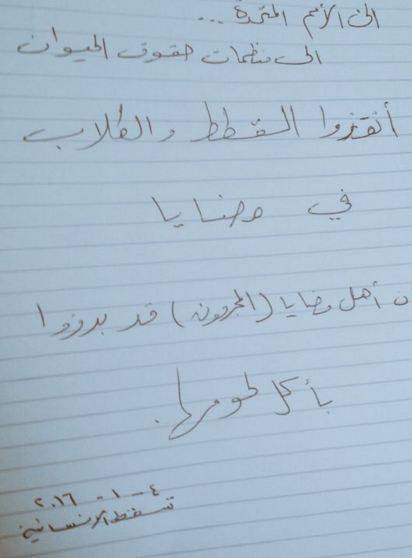 الى الأمم المتحدة ...
الى منظمات حقوق الحيوان
أنقذوا القطط والكلاب
في مضايا
ن أهل مضايا (المجرمون) قد بدؤوا
بأكل لحومها.
٤-١-٢٠١٦
تسقط الإنسانية